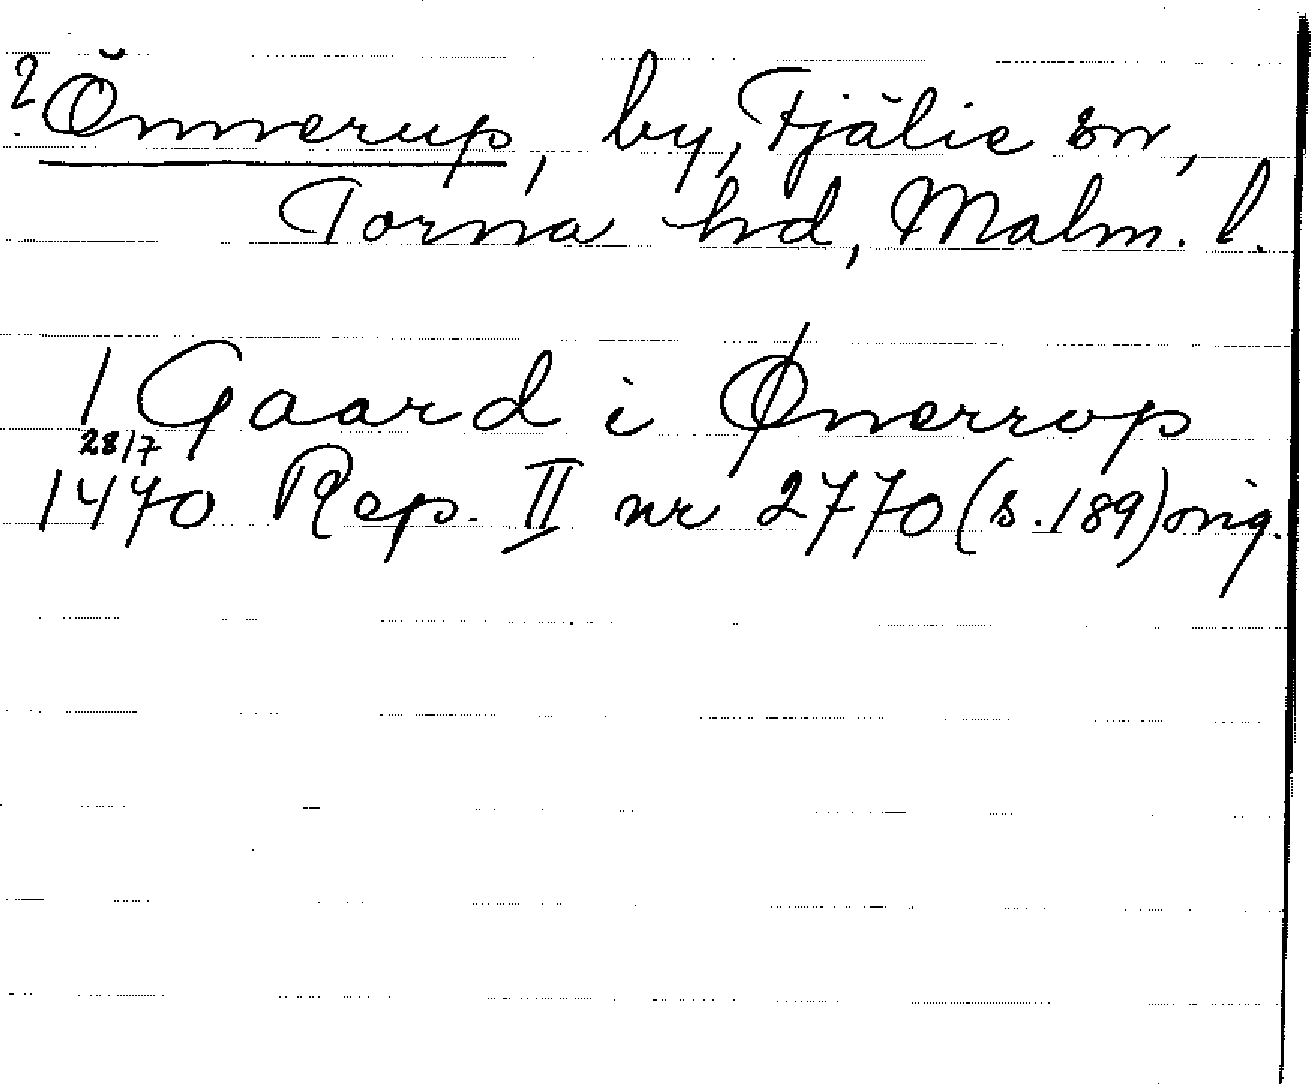 ? Önnerup, by, Fjälie sn,
Torna hd, Malm. l.
1 Gaard i Ønerrop
28/7
1470 Rep. II nr 2770 (s. 189) orig.